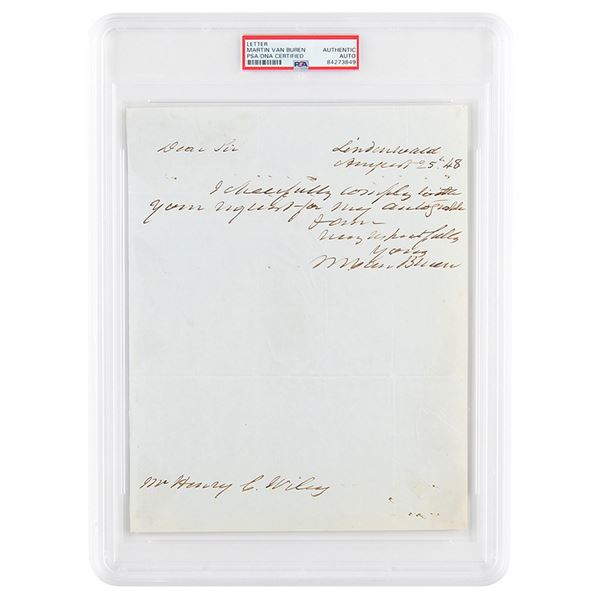 LETTER
MARTIN VAN BUREN
PSA/DNA CERTIFIED
PSA
AUTHENTIC
AUTO
84273849
Dear Sir
Lindenwald
August 25th 48
I cheerfully comply with
your request for my autograph
I am
very respectfully
Yours
M Van Buren
Mr Henry C. Wiley